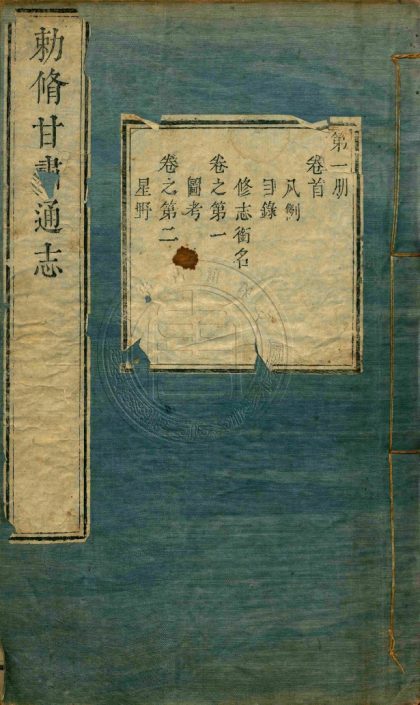 勅脩甘肅通志
第一册
卷首
凡例
目錄
修志銜名
卷之第一
圖考
卷之第二
星野